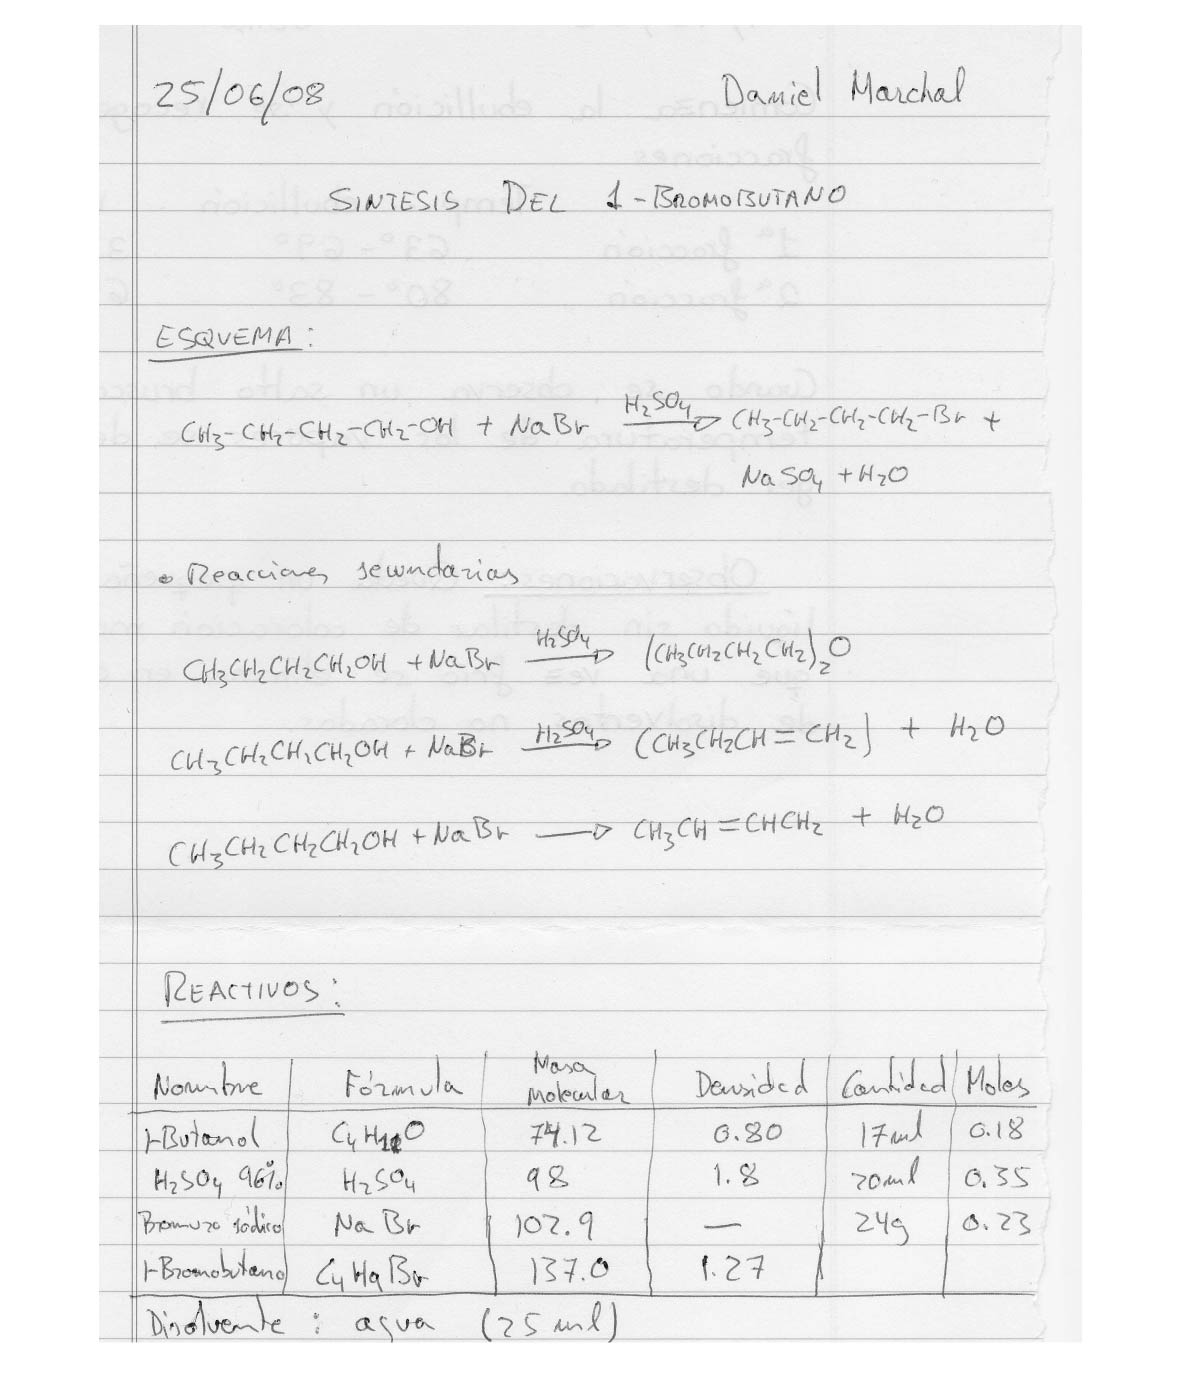 25/06/08 Daniel Marchal
SINTESIS DEL 1-BROMOBUTANO
ESQUEMA:
CH3-CH2-CH2-CH2-OH + NaBr H2SO4 → CH3-CH2-CH2-CH2-Br +
NaSO4 + H2O
• Reacciones secundarias
CH3CH2CH2CH2OH + NaBr H2SO4 → (CH3CH2CH2CH2)2O
CH3CH2CH2CH2OH + NaBr H2SO4 → (CH3CH2CH=CH2) + H2O
CH3CH2CH2CH2OH + NaBr → CH3CH=CHCH2 + H2O
REACTIVOS:
Nombre Fórmula Masa Molecular Densidad Cantidad Moles
1-Butanol C4H10O 74.12 0.80 17ml 0.18
H2SO4 96% H2SO4 98 1.8 20ml 0.35
Bromuro sódico NaBr 102.9 — 24g 0.23
1-Bromobutano C4H9Br 137.0 1.27
Disolvente: agua (25 ml)